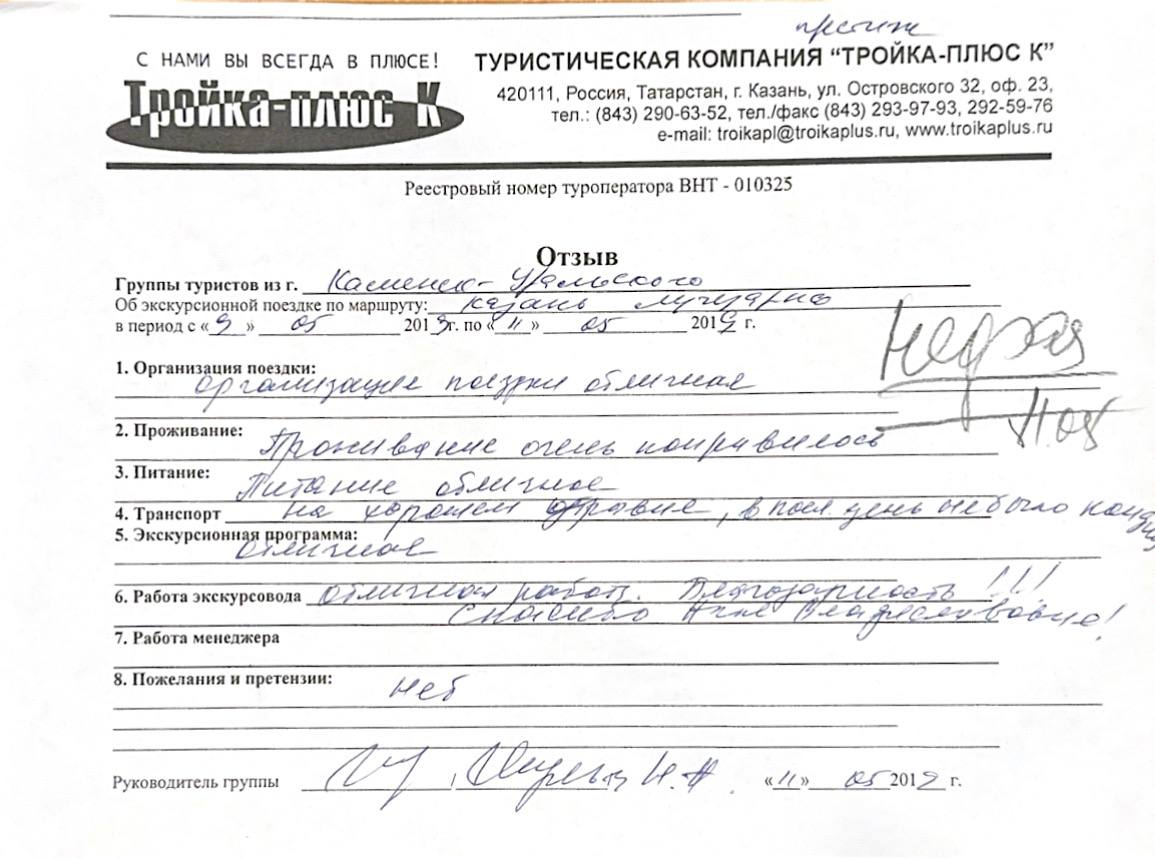 престиж
С НАМИ ВЫ ВСЕГДА В ПЛЮСЕ!
Тройка-плюс К
ТУРИСТИЧЕСКАЯ КОМПАНИЯ “ТРОЙКА-ПЛЮС К”
420111, Россия, Татарстан, г. Казань, ул. Островского 32, оф. 23,
тел.: (843) 290-63-52, тел./факс (843) 293-97-93, 292-59-76
e-mail: troikapl@troikaplus.ru, www.troikaplus.ru
Реестровый номер туроператора ВНТ - 010325
Отзыв
Группы туристов из г. Каменск-Уральского
Об экскурсионной поездке по маршруту: Казань
в период с «9» 05 2019г. по «11» 05 2019 г.
1. Организация поездки:
организация поездки отличная
2. Проживание: Проживание очень понравилось
3. Питание: Питание отличное
4. Транспорт на хорошем , в посл. день не было
5. Экскурсионная программа:
отличная
6. Работа экскурсовода отличная работа. Благодарность!!!
Спасибо Анне Владиславовне!
7. Работа менеджера
8. Пожелания и претензии: Нет
Руководитель группы Н.А. «11» 05 2019 г.